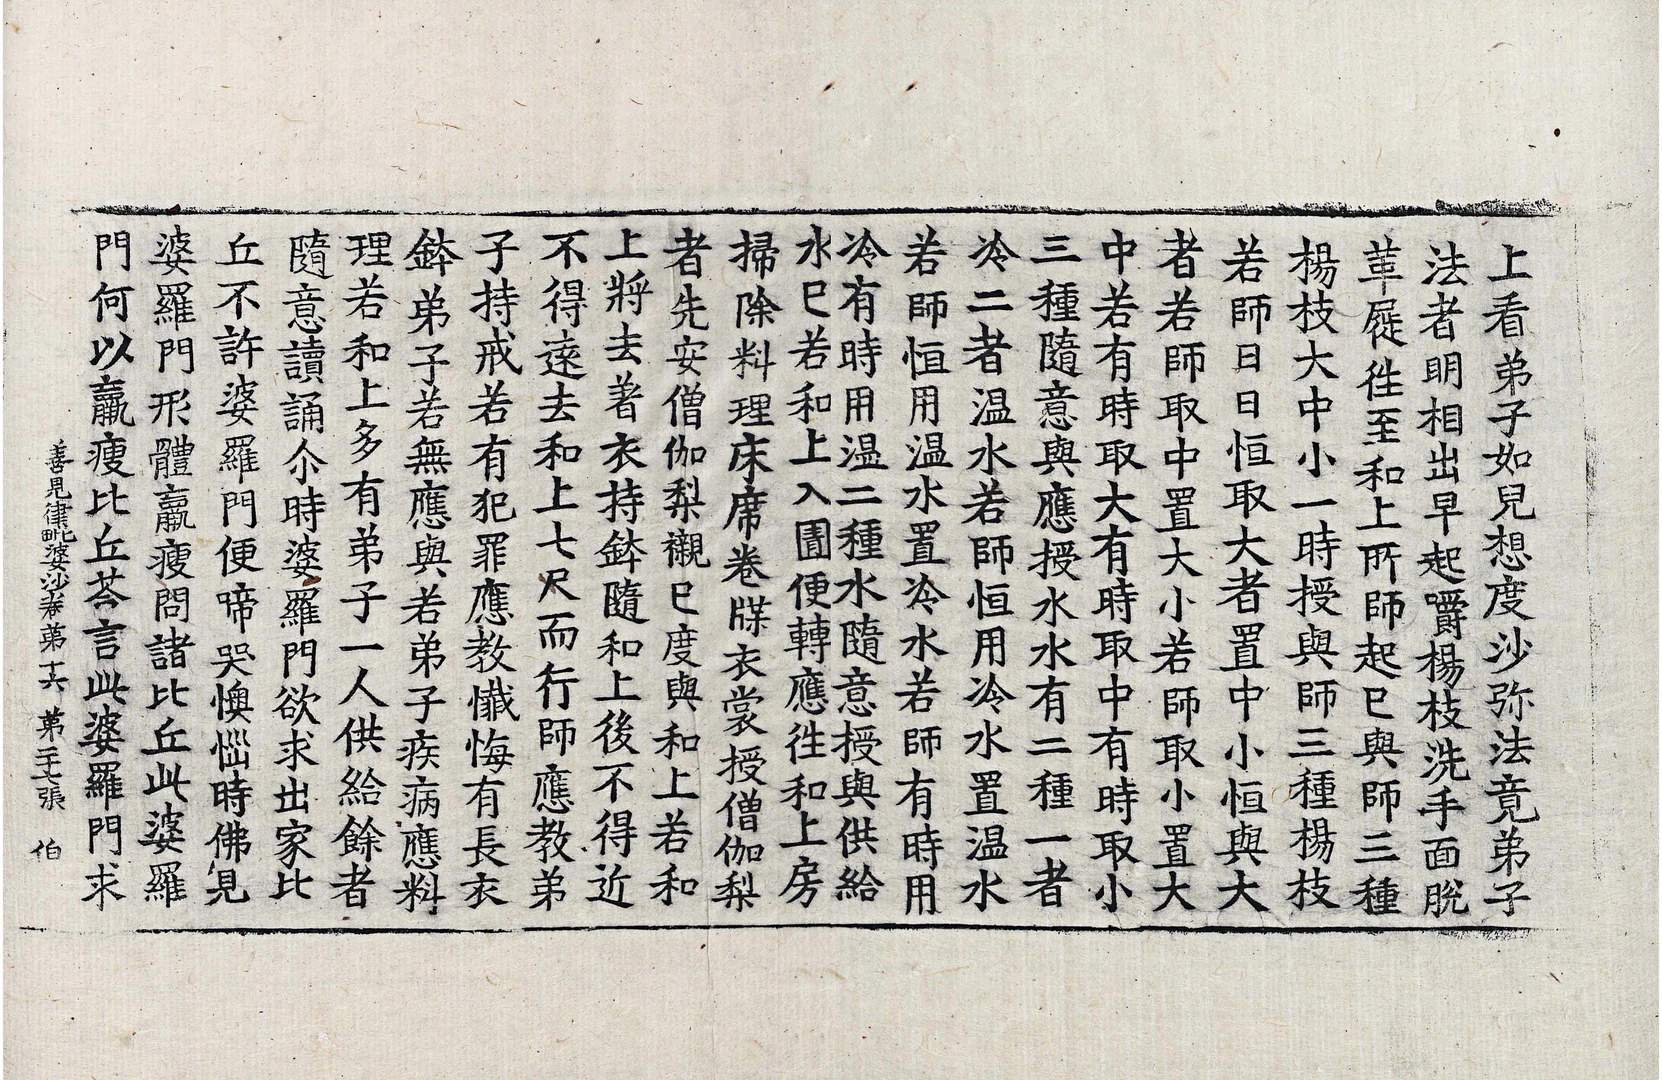 上看弟子如兒想度沙弥法竟弟子
法者明相出早起嚼楊枝洗手面脫
革屣徃至和上所師起已與師三種
楊枝大中小一時授與師三種楊枝
若師日日恒取大者置中小恒與大
者若師取中置大小若師取小置大
中若有時取大有時取中有時取小
三種隨意與應授水水有二種一者
冷二者温水若師恒用冷水置温水
若師恒用温水置冷水若師有時用
冷有時用温二種水隨意授與供給
水已若和上入圊便轉應徃和上房
掃除料理床席卷牒衣裳授僧伽梨
者先安僧伽梨襯已度與和上若和
上將去著衣持鉢隨和上後不得近
不得遠去和上七尺而行師應教弟
子持戒若有犯罪應教懺悔有長衣
鉢弟子若無應與若弟子疾病應料
理若和上多有弟子一人供給餘者
隨意讀誦尒時婆羅門欲求出家比
丘不許婆羅門便啼哭懊惱時佛見
婆羅門形體羸瘦問諸比丘此婆羅
門何以羸瘦比丘荅言此婆羅門求
善見律毗婆沙卷第十六 第二十七張 伯